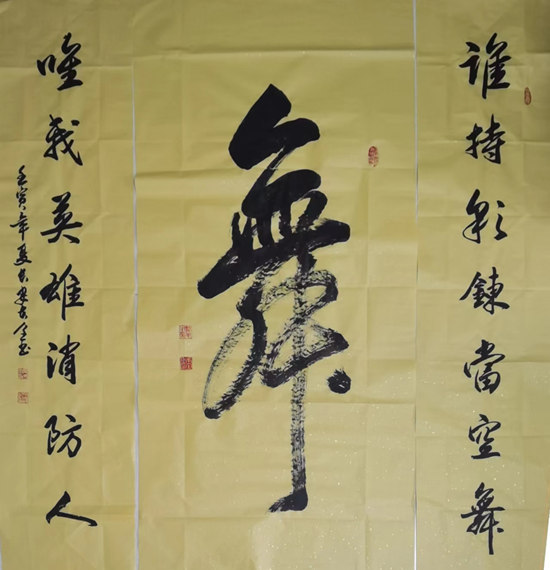 誰持彩鍊當空舞
舞
唯我英雄消防人
壬寅年夏